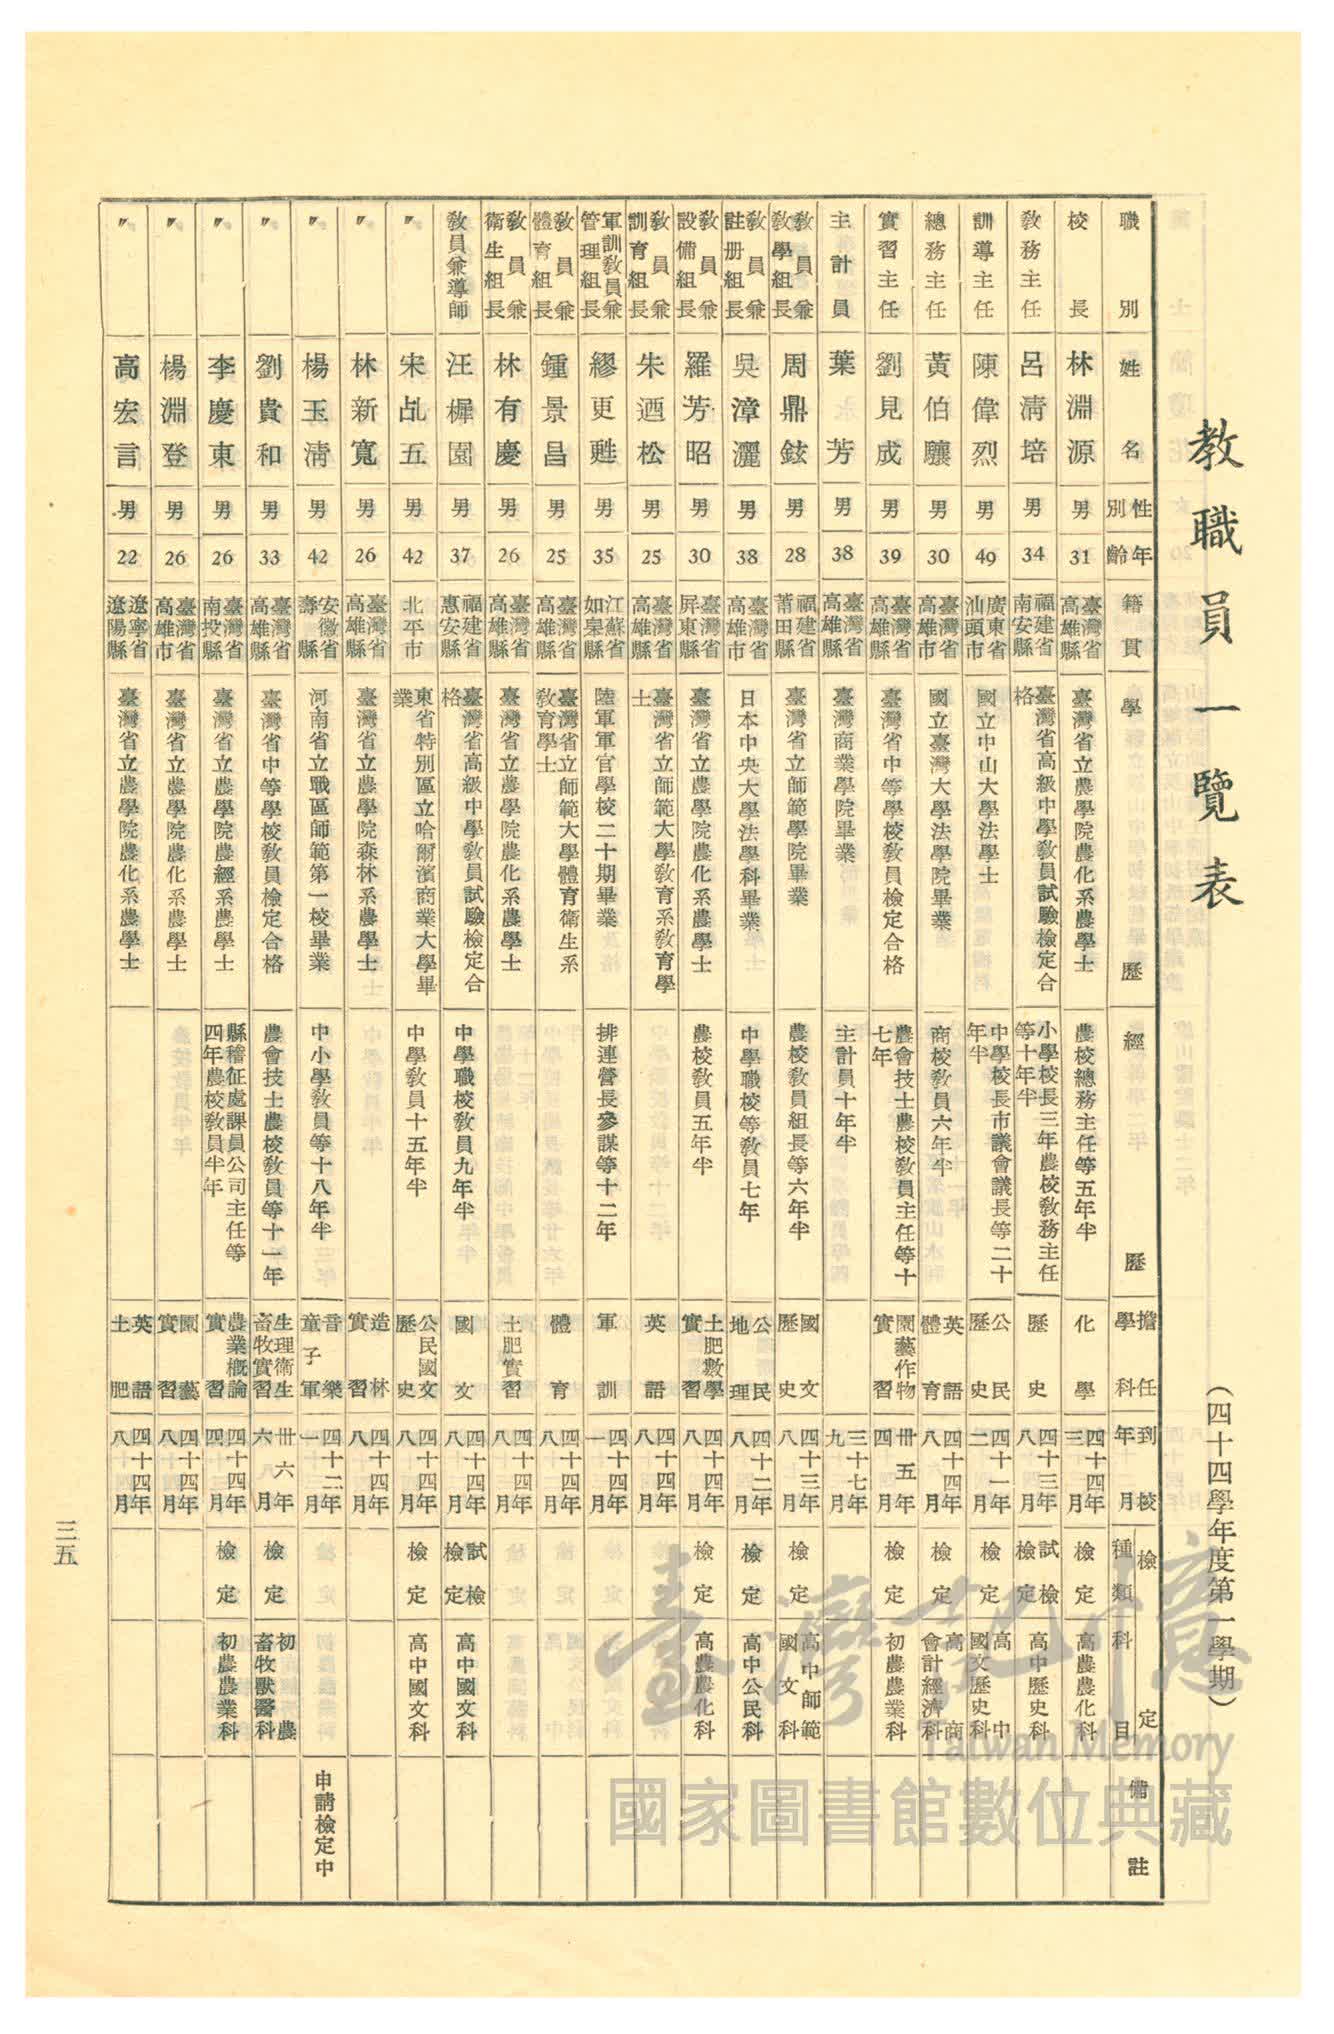 教職員一覽表
(四十四學年度第一學期)
職別 姓名 性別 年齡 籍貫 學歷 經歷 擔任學科 到校年月 檢定種類 科目 備註
校長 林淵源 男 31 臺灣省高雄縣 臺灣省立農學院農化系農學士 農校總務主任等五年半 化學 四十四年三月 檢定 高農農化科
教務主任 呂清培 男 34 福建省南安縣 臺灣省高級中學教員試驗檢定合格 小學校長三年農校教務主任等十年半 歷史 四十三年八月 試檢檢定 高中歷史科
訓導主任 陳偉烈 男 49 廣東省汕頭市 國立中山大學法學士 中學校長市議會議長等二十年半 公民歷史 四十一年二月 檢定 高中國文歷史科
總務主任 黃伯驤 男 30 臺灣省高雄市 國立臺灣大學法學院畢業 商校教員六年半 英語體育 四十四年八月 檢定 高商會計經濟科
實習主任 劉見成 男 39 臺灣省高雄縣 臺灣省中等學校教員檢定合格 農會技士農校教員主任等十七年 園藝作物實習 卅五年四月 檢定 初農農業科
主計員 葉芳 男 38 臺灣省高雄縣 臺灣商業學院畢業 主計員十年半 三十七年九月
教員兼教學組長 周鼎鉉 男 28 福建省莆田縣 臺灣省立師範學院畢業 農校教員組長等六年半 國文歷史 四十三年八月 檢定 高中師範國文科
教員兼註册組長 吳漳灑 男 38 臺灣省高雄市 日本中央大學法學科畢業 中學職校等教員七年 公民地理 四十二年八月 檢定 高中公民科
教員兼設備組長 羅芳昭 男 30 臺灣省屏東縣 臺灣省立農學院農化系農學士 農校教員五年半 土肥數學實習 四十四年八月 檢定 高農農化科
教員兼訓育組長 朱迺松 男 25 臺灣省高雄縣 臺灣省立師範大學教育系教育學士 英語 四十四年八月
軍訓教員兼管理組長 繆更甦 男 35 江蘇省如皋縣 陸軍軍官學校二十期畢業 排連營長參謀等十二年 軍訓 四十四年一月
教員兼體育組長 鍾景昌 男 25 臺灣省高雄縣 臺灣省立師範大學體育衛生系教育學士 體育 四十四年八月
教員兼衛生組長 林有慶 男 26 臺灣省高雄縣 臺灣省立農學院農化系農學士 土肥實習 四十四年八月
教員兼導師 汪樨園 男 37 福建省惠安縣 臺灣省高級中學教員試驗檢定合格 中學職校教員九年半 國文 四十四年八月 試檢檢定 高中國文科
〃 宋乩五 男 42 北平市 東省特別區立哈爾濱商業大學畢業 中學教員十五年半 公民國文歷史 四十四年八月 檢定 高中國文科
〃 林新寬 男 26 臺灣省高雄縣 臺灣省立農學院森林系農學士 造林實習 四十四年八月
〃 楊玉清 男 42 安徽省壽縣 河南省立戰區師範第一校畢業 中小學教員等十八年半 音樂童子軍 四十二年一月 申請檢定中
〃 劉貴和 男 33 臺灣省高雄縣 臺灣省中等學校教員檢定合格 農會技士農校教員等十一年 生理衛生畜牧實習 卅六年六月 檢定 初農畜牧獸醫科
〃 李慶東 男 26 臺灣省南投縣 臺灣省立農學院農經系農學士 縣稽征處課員公司主任等四年農校教員半年 農業概論實習 四十四年四月 檢定 初農農業科
〃 楊淵登 男 26 臺灣省高雄市 臺灣省立農學院農化系農學士 園藝實習 四十四年八月
〃 高宏言 男 22 遼寧省遼陽縣 臺灣省立農學院農化系農學士 英語土肥 四十四年八月
三五
臺灣記憶
Taiwan Memory
國家圖書館數位典藏